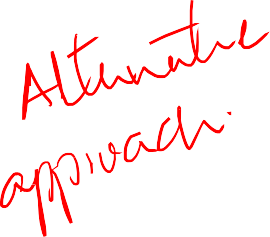 Alternative
approach.